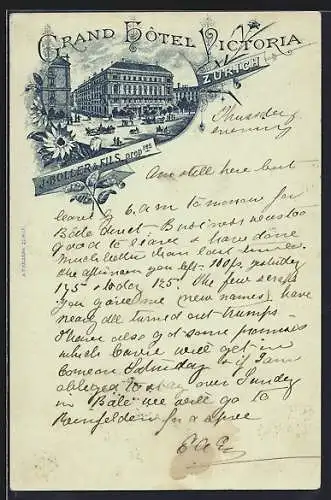 GRAND HÔTEL VICTORIA
ZÜRICH
J. BOLLER & FILS, PROP.res
Thursday
evening
Am still here but
leave by 6. a.m tomorrow for
Bâle direct - Business was too
good to leave & have done
much better than last time.
The afternoon you left 100f. yesterday
175 & today 125. The few scraps
you gave me (new names) have
nearly all turned out trumps -
I have also got some promises
which will get in
Saturday & if I am
obliged to stay over Sunday
in Bâle we will go to
Rheinfelden for a spree